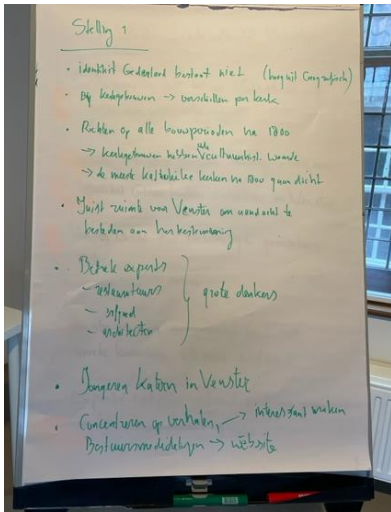 Stelling 1
• identiteit Gelderland bestaat niet (hooguit Geografisch)
• Bij kerkgebouwen → verschillen per kerk
• Richten op alle bouwperioden na 1800
→ kerkgebouwen hebben ook cultuurhist. waarde
→ de meeste katholieke kerken na 1800 gaan dicht
• Juist ruimte van Venster om aandacht te
besteden aan herbestemming
• Betrek experts
- restaurateurs
- erfgoed
- architecten
grote denkers
• Jongeren katern in Venster
• Concentreren op verhalen, → interessant maken
Bestuursmededelingen → website